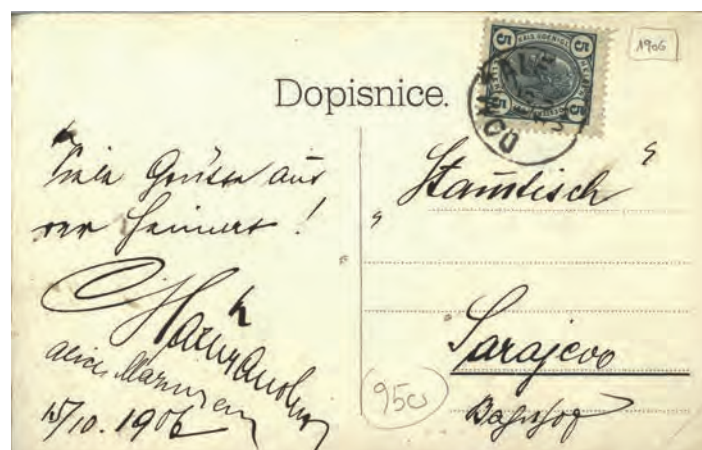 Dopisnice.
1906
5 5
5 5
Viele Grüsse aus
der Heimat!
15/10. 1906
„Stamtisch“
Sarajevo
Bahnhof
95cs